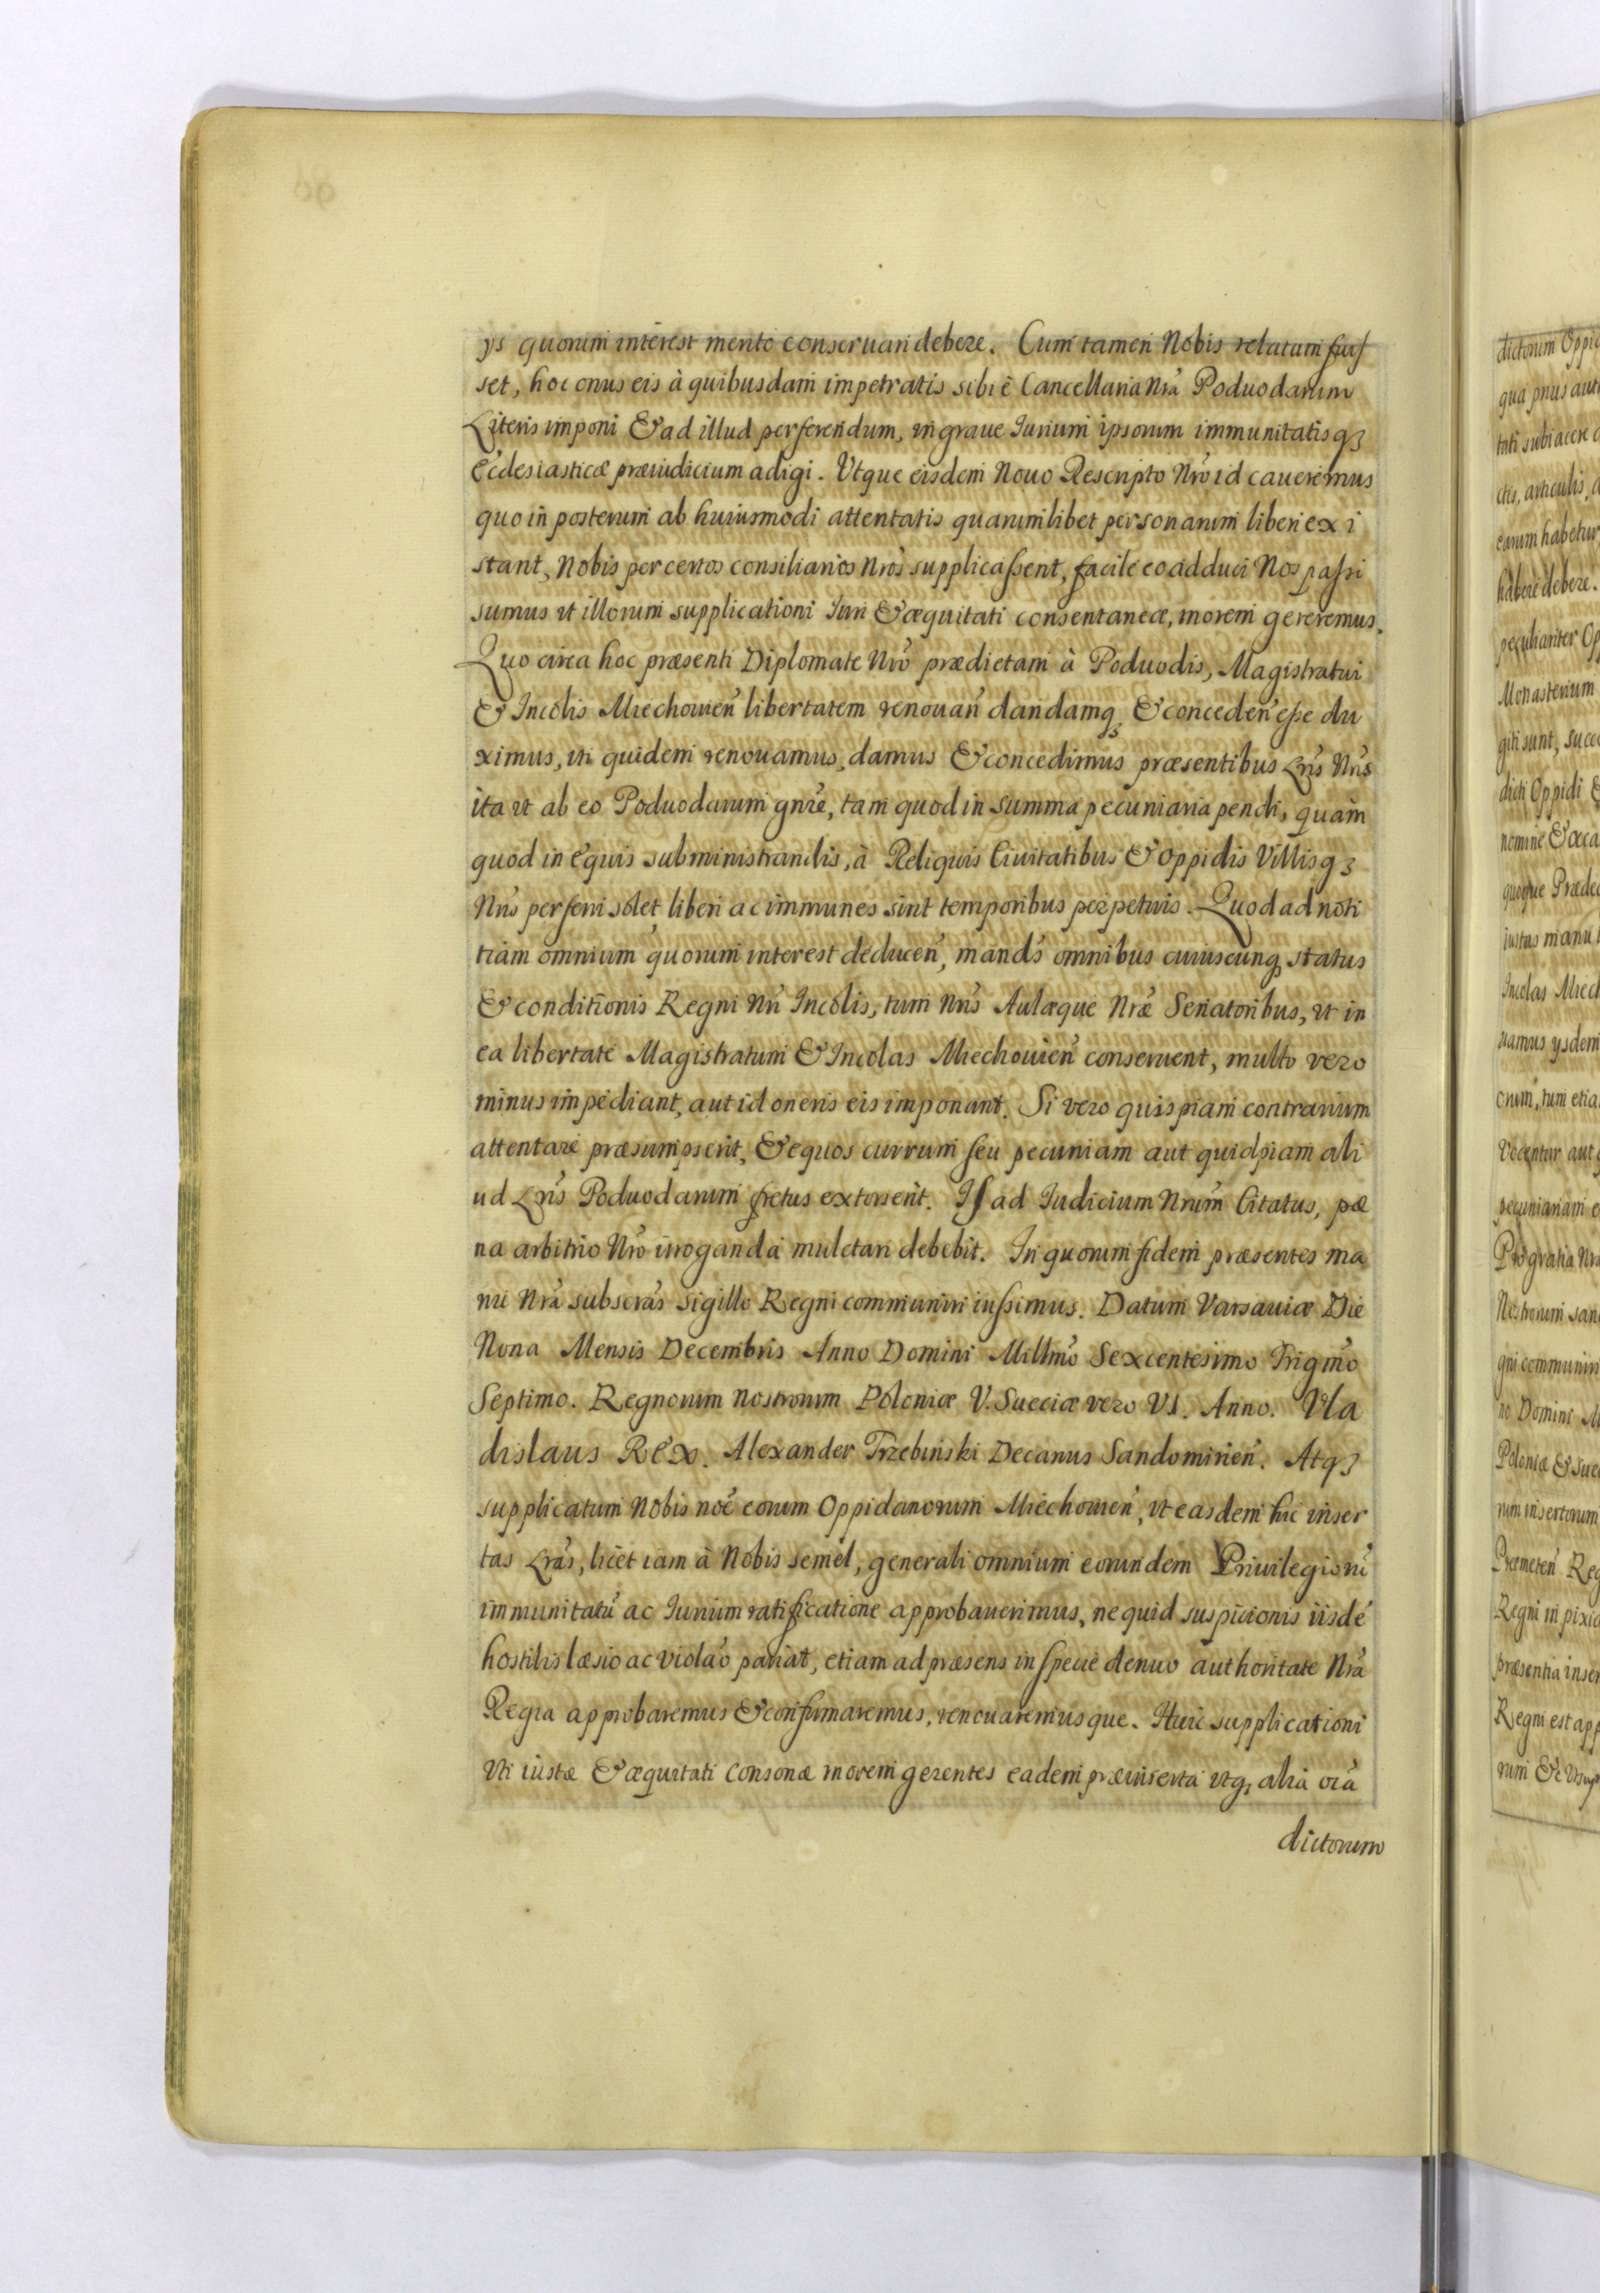 ys quorum interest merito conseruari debere. Cum tamen Nobis relatum fuis
set, hoc onus eis à quibusdam impetratis sibi è Cancellaria Nrã Poduodarum
Literis imponi & ad illud perferendum, in graue Iurium ipsorum immunitatisq3
Ecclesiasticæ præiudicium adigi. Vtque eisdem Nouo Rescripto Nrõ id caueremus
quo in posterum ab huiusmodi attentatis quarumlibet personarum liberi exi
stant, Nobis per certos consiliarios Nrõs supplicassent, facile eo adduci Nos passi
sumus vt illorum supplicationi Iuri & æquitati consentaneæ, morem gereremus.
Quo circa hoc præsenti Diplomate Nrõ prædictam à Poduodis, Magistratui
& Incolis Miechouień libertatem renouań dandamq3 & conceden̄ esse du
ximus, vti quidem renouamus, damus & concedimus præsentibus Lrĩs Nrĩs
ita vt ab eo Poduodarum gnrẽ, tam quod in summa pecuniaria pendi, quam
quod in equis subministrandis, à Reliquis Ciuitatibus & Oppidis Villisq3
Nrĩs perferri solet liberi ac immunes sint temporibus perpetuis. Quod ad noti
tiam omnium quorum interest deducen̄, mandś omnibus cuiuscunq3 status
& conditionis Regni Nrĩ Incolis, tum Nrĩs Aulæque Nræ̃ Senatoribus, vt in
ea libertate Magistratum & Incolas Miechouień conseruent, multo vero
minus impediant, aut id oneris eis imponant. Si vero quispiam contrarium
attentare præsumpserit, & equos currum seu pecuniam aut quidpiam ali
ud Lrĩs Poduodarum fretus extorserit. Is ad Iudicium Nrũm Citatus, pæ
na arbitrio Nrõ irroganda mulctari debebit. In quorum fidem præsentes ma
nu Nrã subscrãs sigillo Regni communiri iussimus. Datum Varsauiæ Die
Nona Mensis Decembris Anno Domini Millmõ Sexcentesimo Trigmõ
Septimo. Regnorum nostrorum Poloniæ V. Sueciæ vero VI. Anno. Vla
dislaus Rex. Alexander Trzebiński Decanus Sandomirień. Atq3
supplicatum Nobis noẽ eorum Oppidanorum Miechouień, vt easdem hic inser
tas Lrãs, licet iam à Nobis semel, generali omnium eorundem Priuilegiorũ
immunitatũ ac Iurium ratificatione approbauerimus, ne quid suspicionis iisdẽ
hostilis læsio ac violãо pariat, etiam ad præsens in specie denuo authoritate Nrã
Regia approbaremus & confirmaremus, renouaremusque. Huic supplicationi
vti iustæ & æquitati consonæ morem gerentes eadem præinserta vtq3 alia oĩa
dictorum